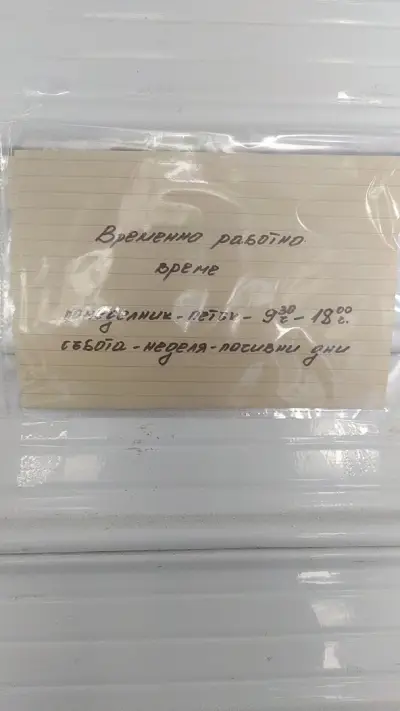 Временно работно
време
понеделник - петък - 9 30 ч. - 18 00 ч.
събота - неделя - почивни дни